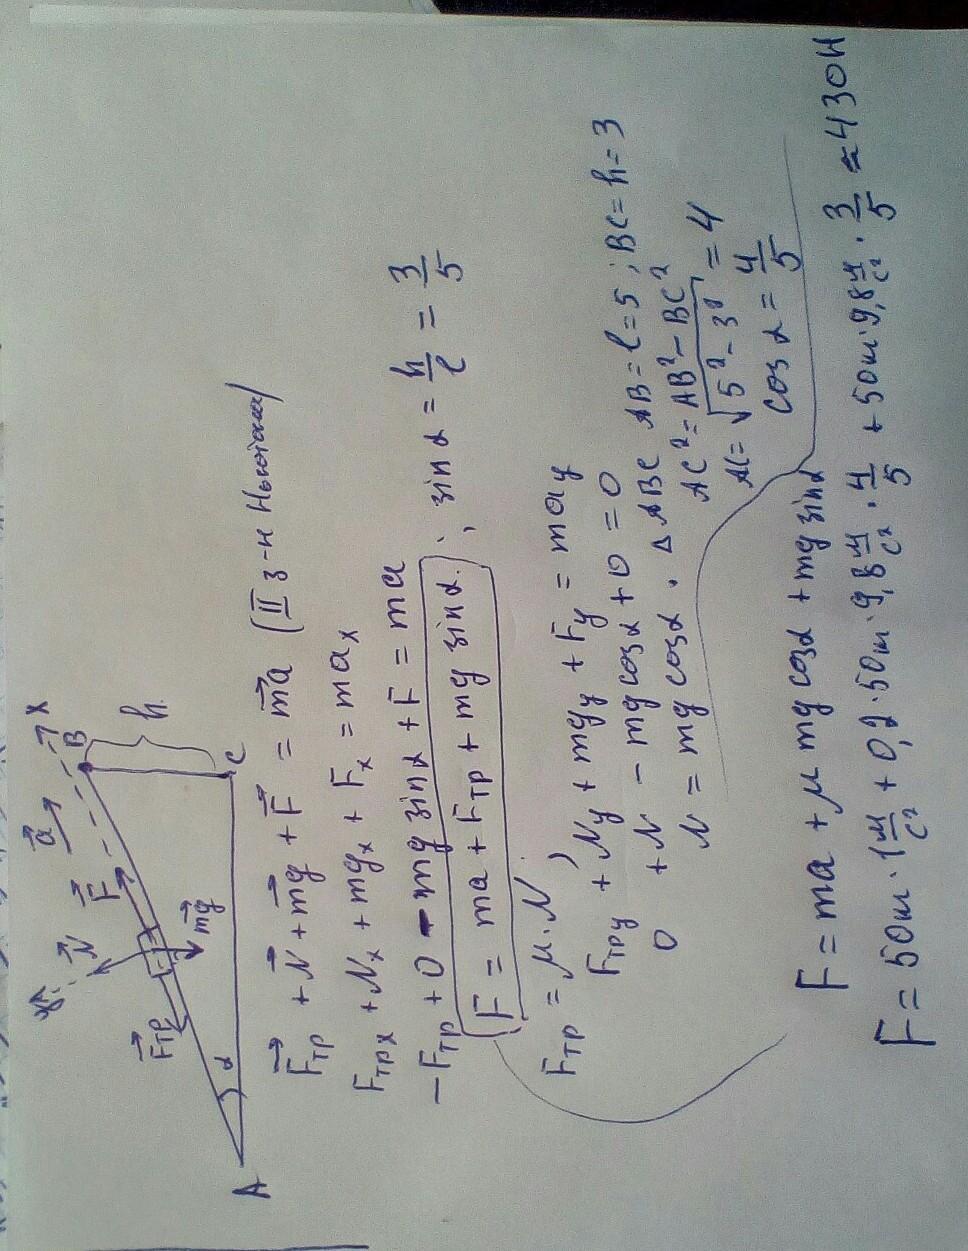 y
X
N⃗
F⃗
a⃗
B
F⃗тр
mg⃗
h
α
A
C
F⃗тр + N⃗ + mg⃗ + F⃗ = ma⃗ (II з-н Ньютона)
Fтрx + Nx + mgx + Fx = max
-Fтр + 0 - mg sinα + F = ma
F = ma + Fтр + mg sinα. ; sinα = h/l = 3/5
Fтр = μ·N
Fтрy + Ny + mgy + Fy = may
0 + N - mg cosα + 0 = 0
N = mg cosα.
Δ ABC AB = l = 5 ; BC = h = 3
AC² = AB² - BC²
AC = √5² - 3² = 4
cos α = 4/5
F = ma + μ mg cosα + mg sinα
F = 50кг·1м/с² + 0,2·50кг·9,8м/с²·4/5 + 50кг·9,8м/с²·3/5 ≈ 430Н